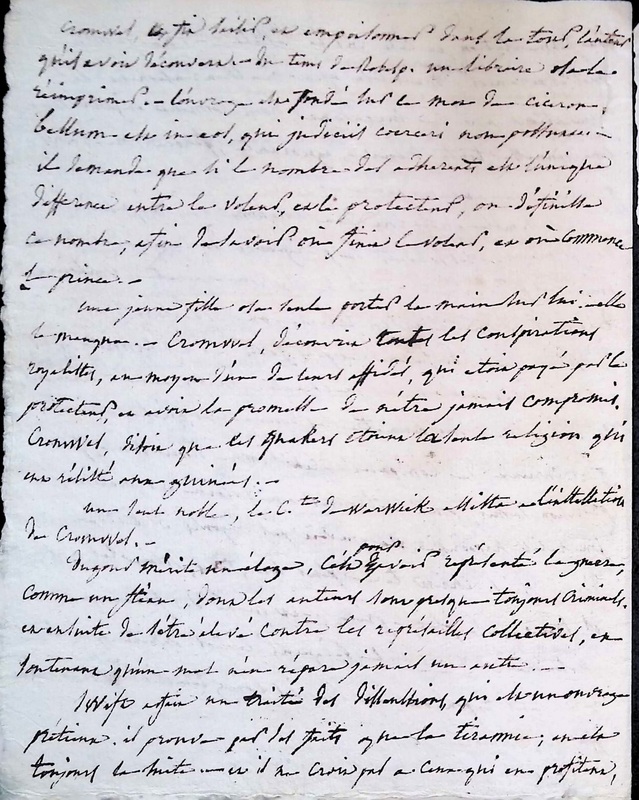 Cromwel, le fit saisir, et emprisonner dans la tour, l'auteur
qu'il avoit découvert. - du tems de Robesp. un libraire osa le
réimprimer. - l'ouvrage est fondé sur le mot de ciceron,
bellum est in eos, qui judiciis coerceri non possunt. -
il demande que si le nombre des adherents est l'unique
difference entre le voleur, et le protecteur, on définisse
ce nombre, afin de savoir où finit le voleur, et où commence
le prince. -
une jeune fille osa seule porter la main sur lui. elle
le manqua. - Cromwel, découvrit toutes les conspirations
royalistes, au moyen d'un de leurs affidés, qui étoit payé par le
protecteur, et avoit la promesse de n'être jamais compromis.
Cromwel, disoit que les quakers étoient la seule religion qui
eut résisté aux guinées. -
un seul noble, le C.te de Warwick assista à l'installation
de Cromwel. -
Dugout mérite un éloge, c'est pour avoir représenté la guerre,
comme un fléau, dont les auteurs sont presque toujours criminels.
et ensuite de s'être élevé contre les represailles collectives, en
soutenant qu'un mal n'en répare jamais un autre. -
Swift a fait un traité des dissentions, qui est un ouvrage
prétieux. il prouve par des faits que la tirannie, en est
toujours la suite - et il ne croit pas à ceux qui en profitent,